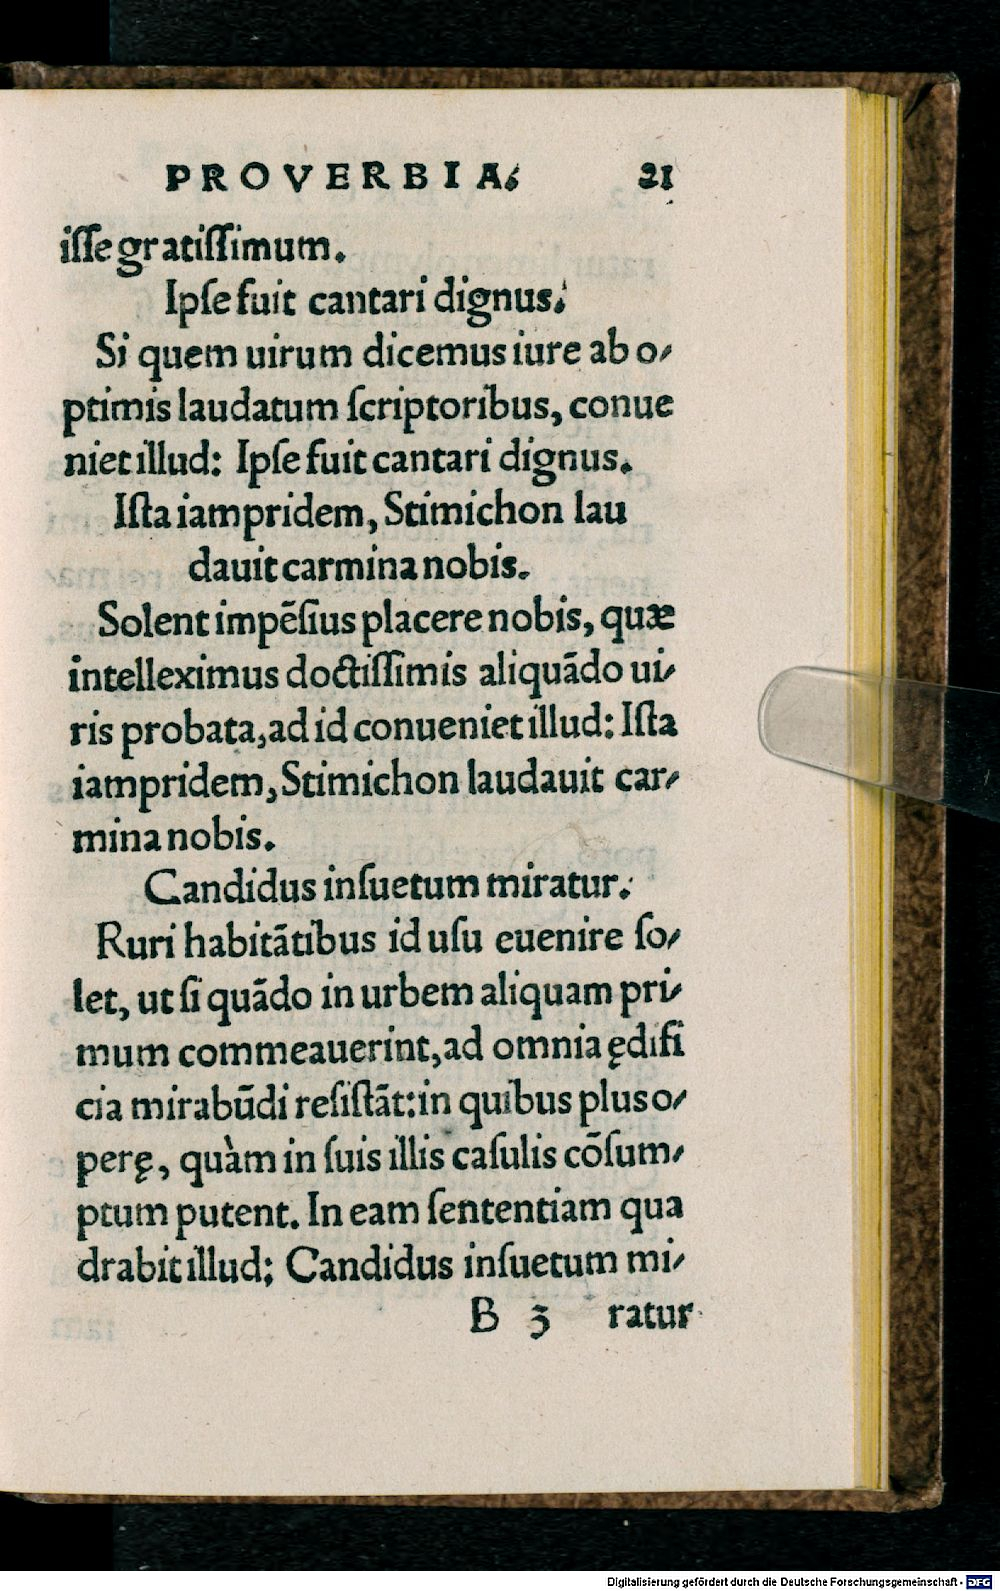 PROVERBIA. 21
iſſe gratiſſimum.
Ipſe fuit cantari dignus.
Si quem uirum dicemus iure ab o-
ptimis laudatum ſcriptoribus, conue
niet illud: Ipſe fuit cantari dignus.
Iſta iampridem, Stimichon lau
dauit carmina nobis.
Solent impẽſius placere nobis, quæ
intelleximus doctiſſimis aliquãdo ui-
ris probata, ad id conueniet illud: Iſta
iampridem, Stimichon laudauit car-
mina nobis.
Candidus inſuetum miratur.
Ruri habitãtibus id uſu euenire ſo-
let, ut ſi quãdo in urbem aliquam pri-
mum commeauerint, ad omnia ędifi
cia mirabũdi reſiſtãt: in quibus plus o-
perę, quàm in ſuis illis caſulis cõſum-
ptum putent. In eam ſententiam qua
drabit illud; Candidus inſuetum mi-
B 3 ratur
Digitalisierung gefördert durch die Deutsche Forschungsgemeinschaft - DFG